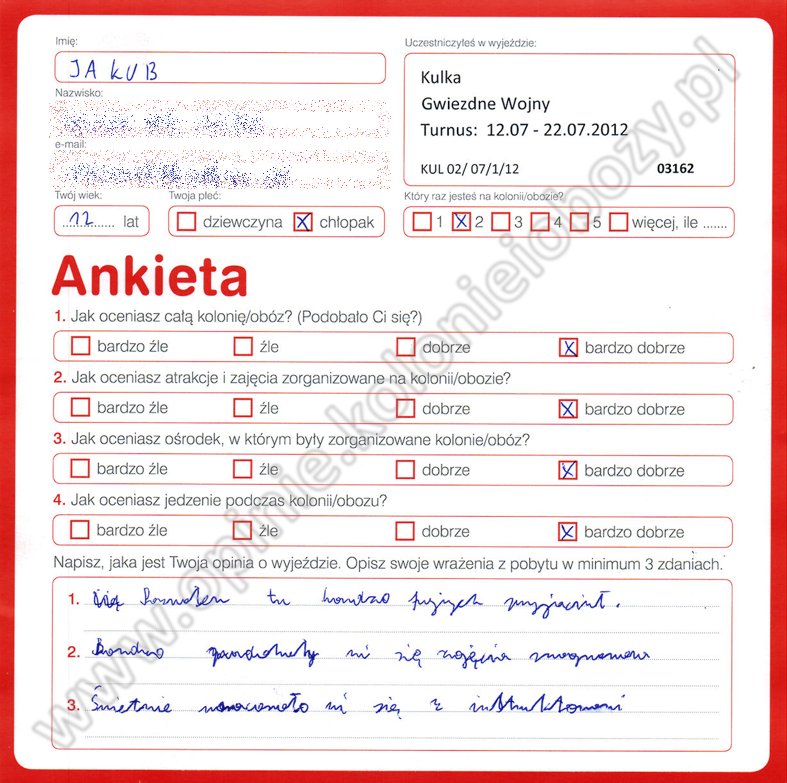 Imię:
JAKUB
Nazwisko:
e-mail:
Twój wiek:
12 lat
Twoja płeć:
dziewczyna X chłopak
Uczestniczyłeś w wyjeździe:
Kulka
Gwiezdne Wojny
Turnus: 12.07 - 22.07.2012
KUL 02/ 07/1/12 03162
Który raz jesteś na kolonii/obozie?
1 X 2 3 4 5 więcej, ile .......
Ankieta
1. Jak oceniasz całą kolonię/obóz? (Podobało Ci się?)
bardzo źle źle dobrze X bardzo dobrze
2. Jak oceniasz atrakcje i zajęcia zorganizowane na kolonii/obozie?
bardzo źle źle dobrze X bardzo dobrze
3. Jak oceniasz ośrodek, w którym były zorganizowane kolonie/obóz?
bardzo źle źle dobrze X bardzo dobrze
4. Jak oceniasz jedzenie podczas kolonii/obozu?
bardzo źle źle dobrze X bardzo dobrze
Napisz, jaka jest Twoja opinia o wyjeździe. Opisz swoje wrażenia z pobytu w minimum 3 zdaniach.
1. tu bardzo fajnych przyjaciół.
2. Bardzo mi się zajęcia
3. Świetnie mi się z instruktorami
www.opinie.kolonieiobozy.pl